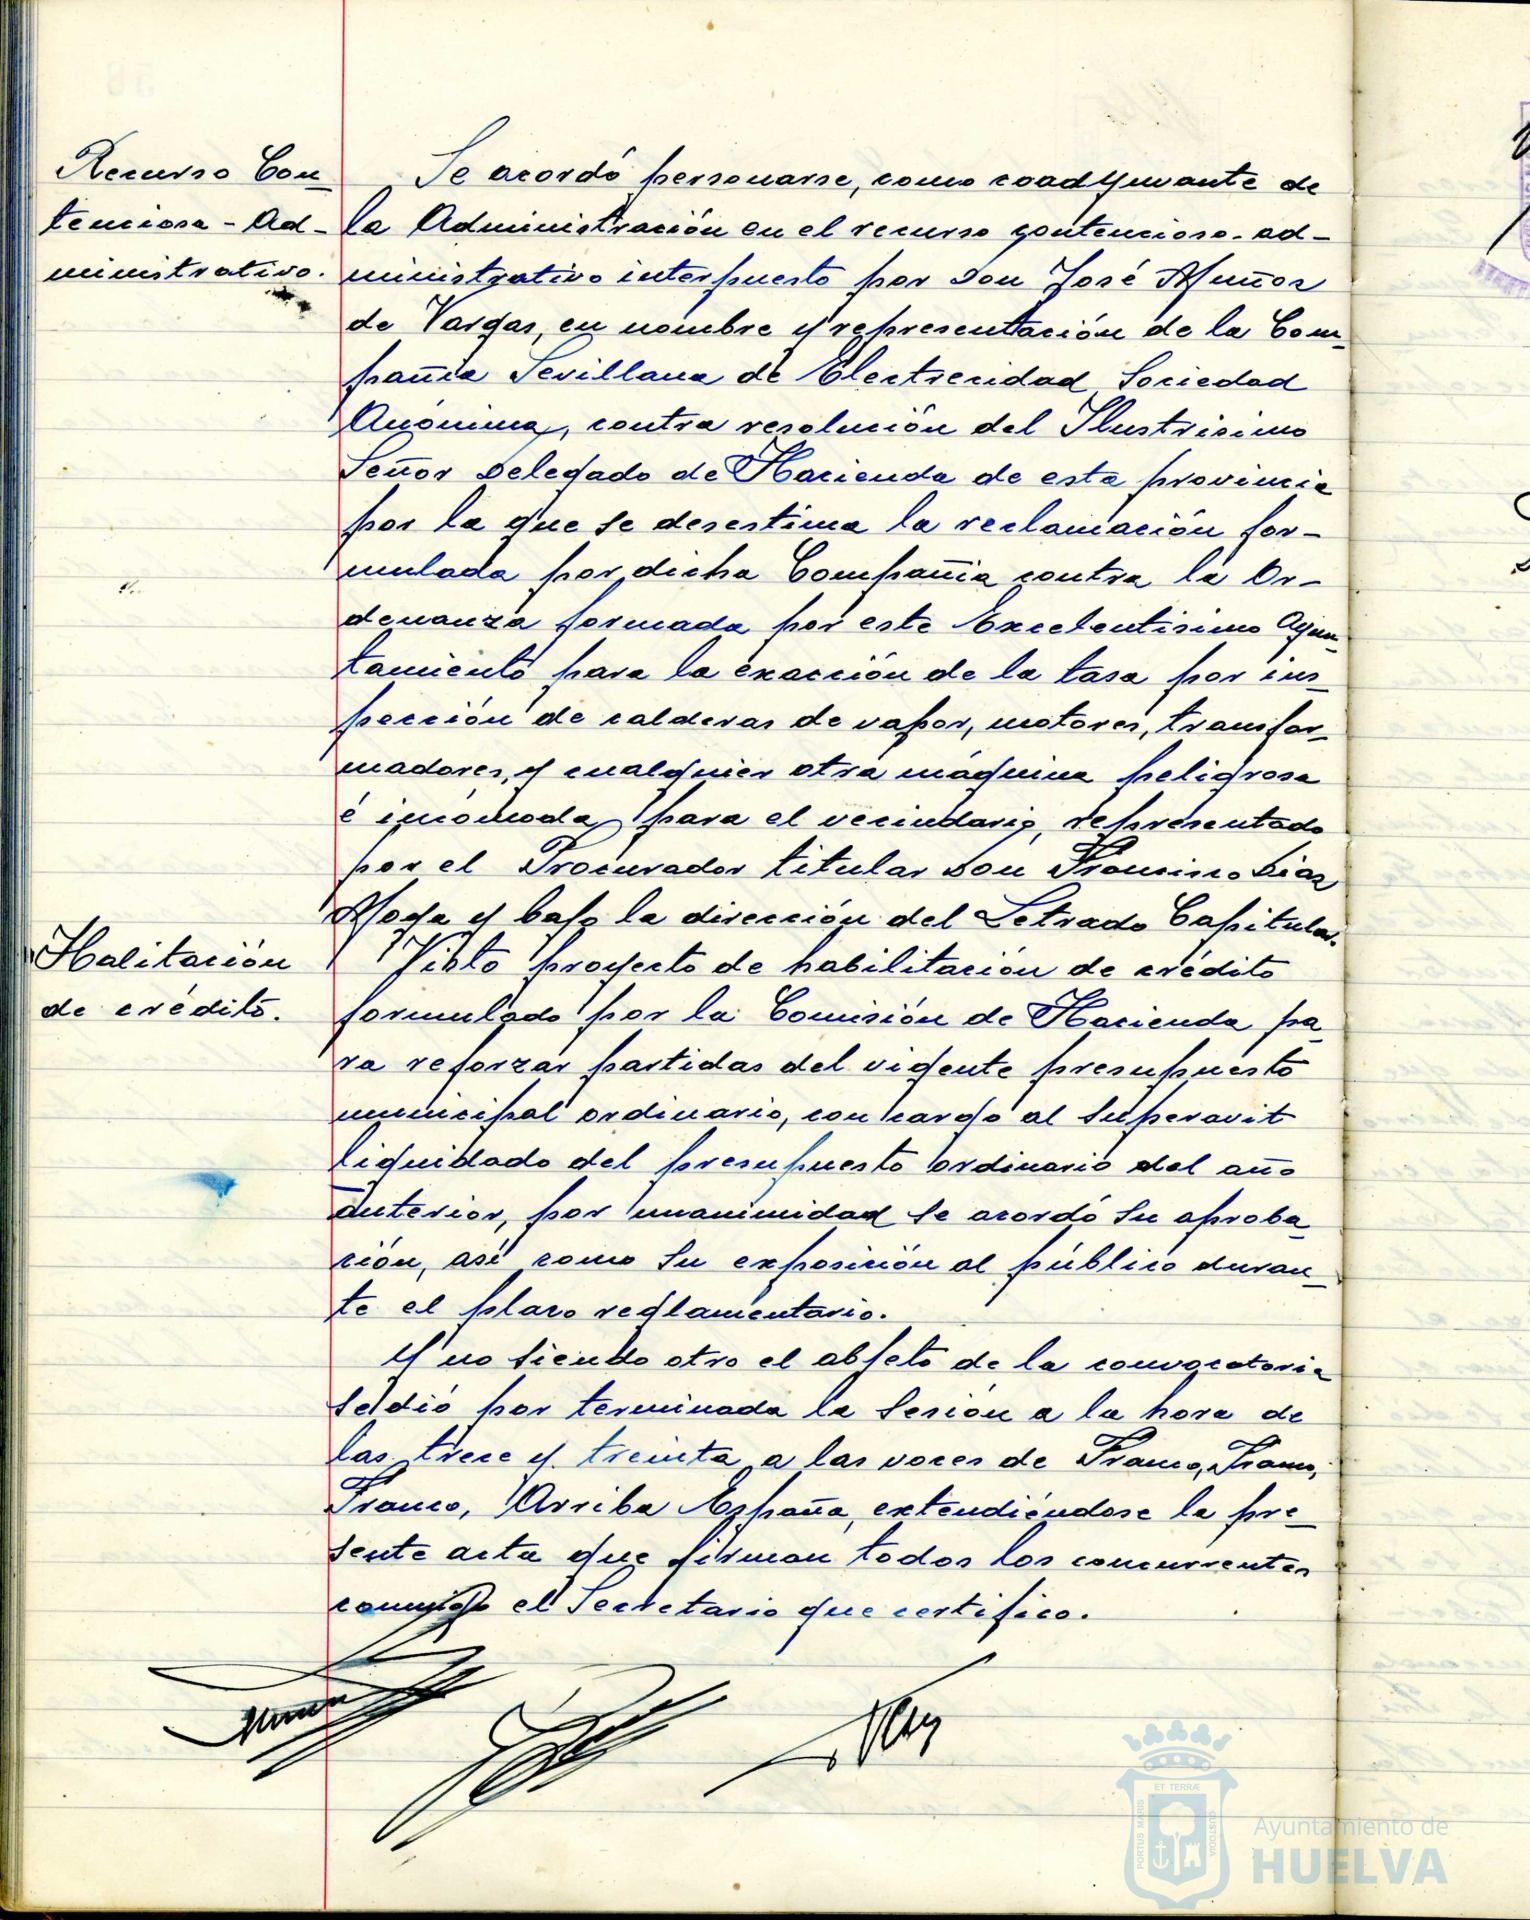 Recurso Con-
tencioso-Ad-
ministrativo.
Se acordó personarse, como coadyuvante de
la Administración en el recurso contencioso-ad-
ministrativo interpuesto por Don José Muñoz
de Vargas, en nombre y representación de la Com-
pañia Sevillana de Electricidad Sociedad
Anónima, contra resolución del Ilustrisimo
Señor Delegado de Hacienda de esta provincia
por la que se desestima la reclamación for-
mulada por dicha Compañia contra la Or-
denanza formada por este Excelentisimo Ayun-
tamiento para la exacción de la tasa por ins-
pección de calderas de vapor, motores, transfor-
madores, y cualquier otra maquina peligrosa
é incómoda para el vecindario, representado
por el Procurador titular Don Francisco Diaz
Moya y bajo la dirección del Letrado Capitular.
Halitación
de crédito.
Visto proyecto de habilitación de crédito
formulado por la Comisión de Hacienda pa-
ra reforzar partidas del vigente presupuesto
municipal ordinario, con cargo al Superavit
liquidado del presupuesto ordinario del año
anterior, por unanimidad se acordó su aproba-
ción, asi como su exposición al público duran-
te el plazo reglamentario.
Y no siendo otro el objeto de la convocatoria
se dió por terminada la Sesion a la hora de
las trece y treinta a las voces de Franco, Franco,
Franco, Arriba España, extendiéndose la pre-
sente acta que firman todos los concurrentes
conmigo el Secretario que certifico.
ET TERRÆ
PORTUS MARIS
CUSTODIA
Ayuntamiento de
HUELVA